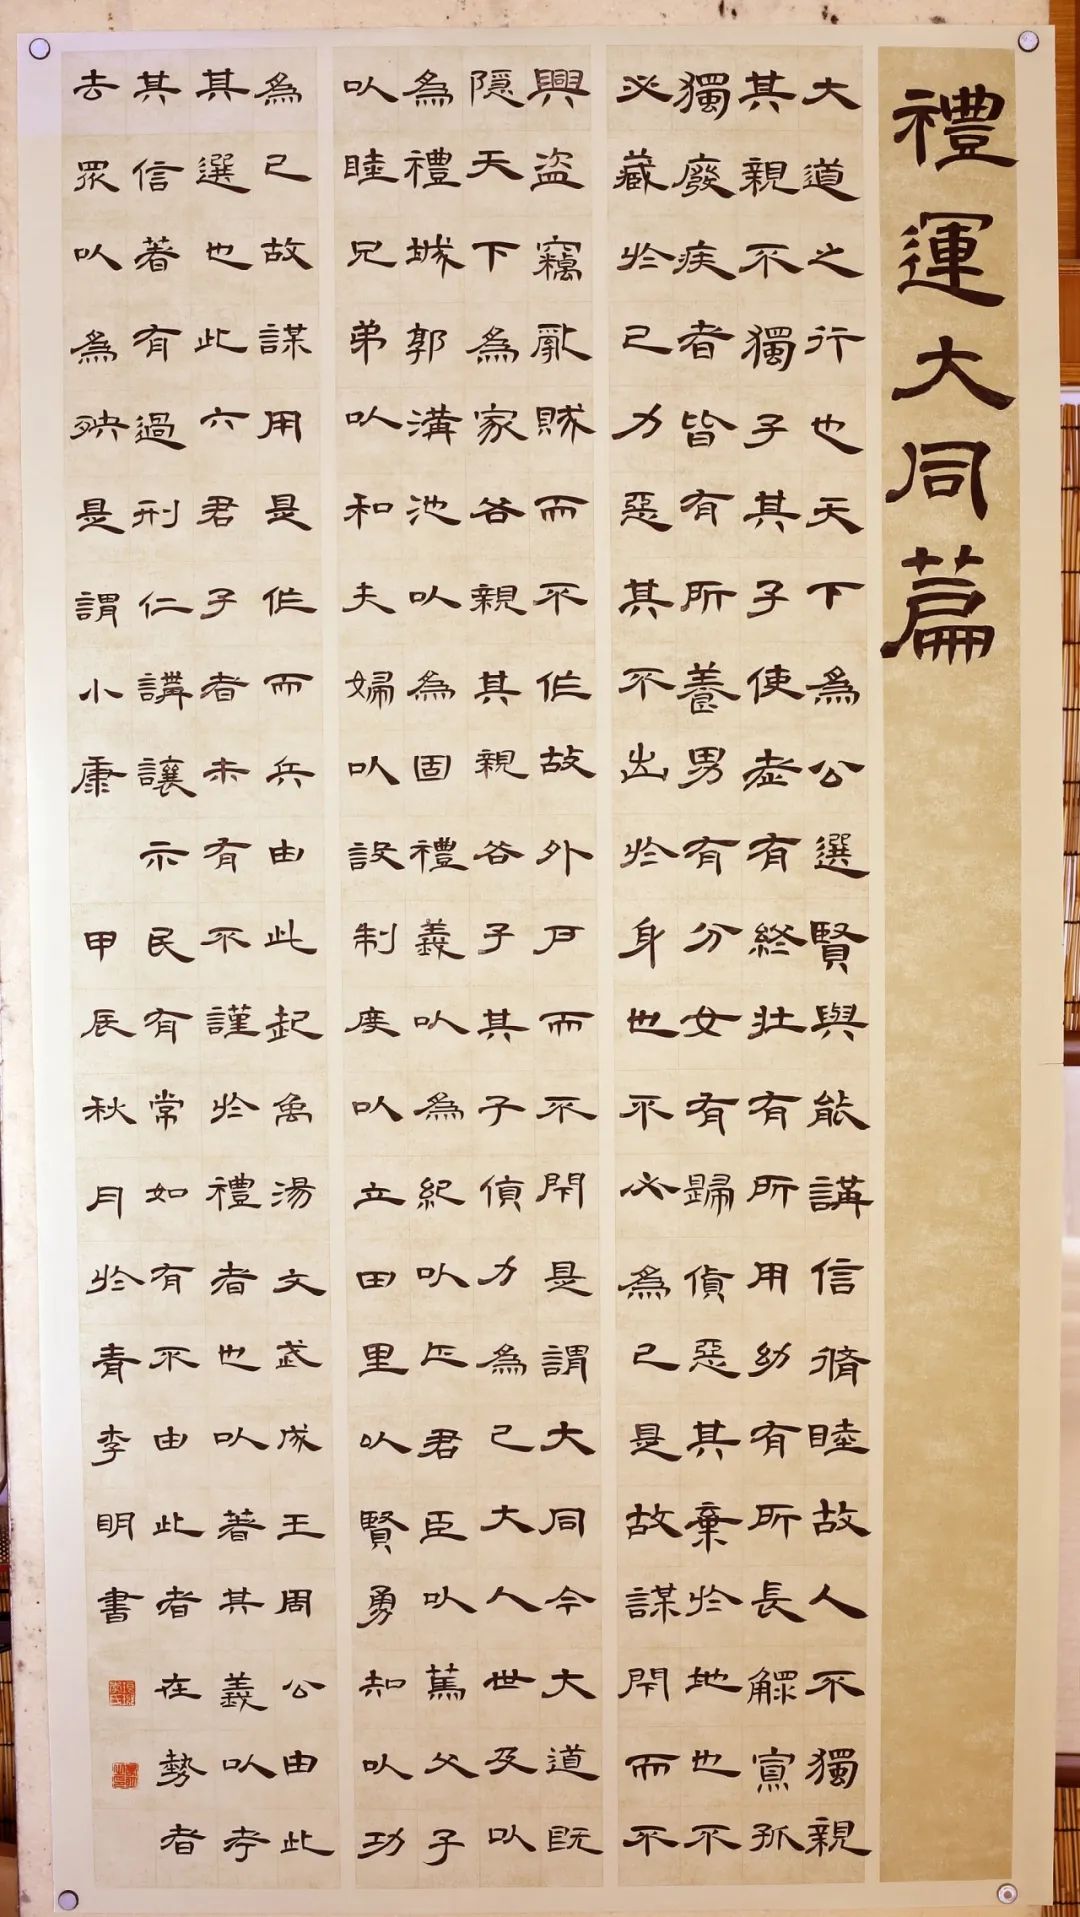 禮運大同篇
大道之行也天下為公選賢與能講信脩睦故人不獨親
其親不獨子其子使老有終壯有所用幼有所長鰥寡孤
獨廢疾者皆有所養男有分女有歸貨惡其棄於地也不
必藏於己力惡其不出於身也不必為己是故謀閉而不
興盜竊亂賊而不作故外戶而不閉是謂大同今大道既
隱天下為家各親其親各子其子貨力為己大人世及以
為禮城郭溝池以為固禮義以為紀以正君臣以篤父子
以睦兄弟以和夫婦以設制度以立田里以賢勇知以功
為己故謀用是作而兵由此起禹湯文武成王周公由此
其選也此六君子者未有不謹於禮者也以著其義以考
其信著有過刑仁講讓示民有常如有不由此者在勢者
去眾以為殃是謂小康 甲辰秋月於青李明書